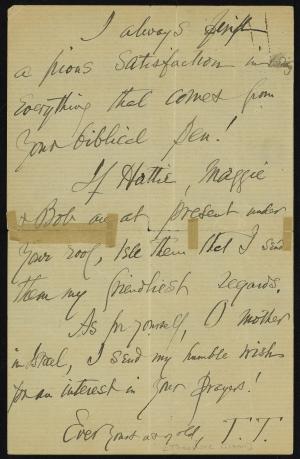 I always find
a pious satisfaction in
Everything that comes from
your biblical pen!
If Hattie, Maggie
& Bob are at present under
your roof, tell them that I send
them my friendliest regards.
As for yourself, O mother
in Israel, I send my humble wish
for an interest in your prayers!
Ever yours as of old, T. T.